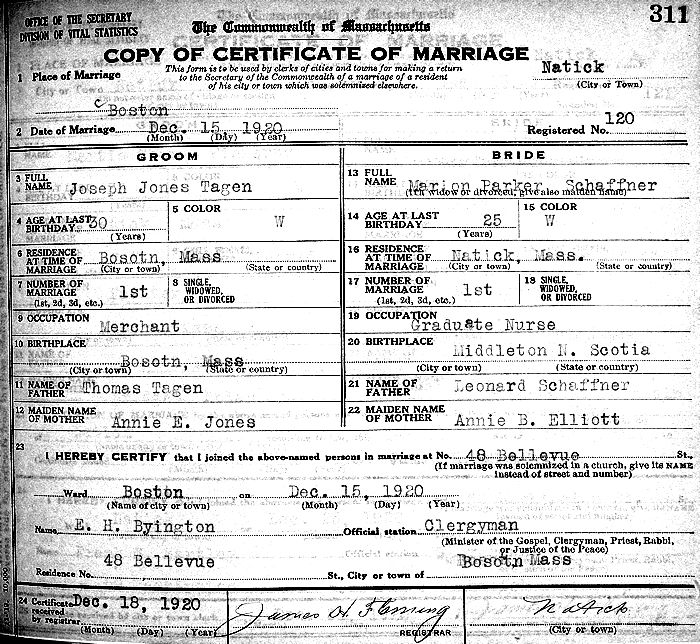 OFFICE OF THE SECRETARY
DIVISION OF VITAL STATISTICS
The Commonwealth of Massachusetts
311
COPY OF CERTIFICATE OF MARRIAGE
This form is to be used by clerks of cities and towns for making a return
to the Secretary of the Commonwealth of a marriage of a resident
of his city or town which was solemnized elsewhere.
Natick
(City or Town)
1 Place of Marriage
Boston
2 Date of Marriage Dec. 15 1920
(Month) (Day) (Year)
Registered No. 120
GROOM
3 FULL NAME Joseph Jones Tagen
4 AGE AT LAST BIRTHDAY 30
(Years)
5 COLOR W
6 RESIDENCE AT TIME OF MARRIAGE Bosotn, Mass
(City or town) (State or country)
7 NUMBER OF MARRIAGE 1st
(1st, 2d, 3d, etc.)
8 SINGLE, WIDOWED, OR DIVORCED
9 OCCUPATION Merchant
10 BIRTHPLACE Bosotn, Mass
(City or town) (State or country)
11 NAME OF FATHER Thomas Tagen
12 MAIDEN NAME OF MOTHER Annie E. Jones
BRIDE
13 FULL NAME Marion Parker Schaffner
(If a widow or divorced, give also maiden name)
14 AGE AT LAST BIRTHDAY 25
(Years)
15 COLOR W
16 RESIDENCE AT TIME OF MARRIAGE Natick, Mass.
(City or town) (State or country)
17 NUMBER OF MARRIAGE 1st
(1st, 2d, 3d, etc.)
18 SINGLE, WIDOWED, OR DIVORCED
19 OCCUPATION Graduate Nurse
20 BIRTHPLACE Middleton N. Scotia
(City or town) (State or country)
21 NAME OF FATHER Leonard Schaffner
22 MAIDEN NAME OF MOTHER Annie B. Elliott
23
I HEREBY CERTIFY that I joined the above-named persons in marriage at No. 48 Bellevue St.,
(If marriage was solemnized in a church, give its NAME
instead of street and number)
Ward Boston on Dec. 15, 1920
(Name of city or town) (Month) (Day) (Year)
Name E. H. Byington Official station Clergyman
(Minister of the Gospel, Clergyman, Priest, Rabbi,
or Justice of the Peace)
Residence No. 48 Bellevue St., City or town of Bosotn Mass
24 Certificate received by registrar Dec. 18, 1920
(Month) (Day) (Year)
James H. Fleming
REGISTRAR
Natick
(City or town)